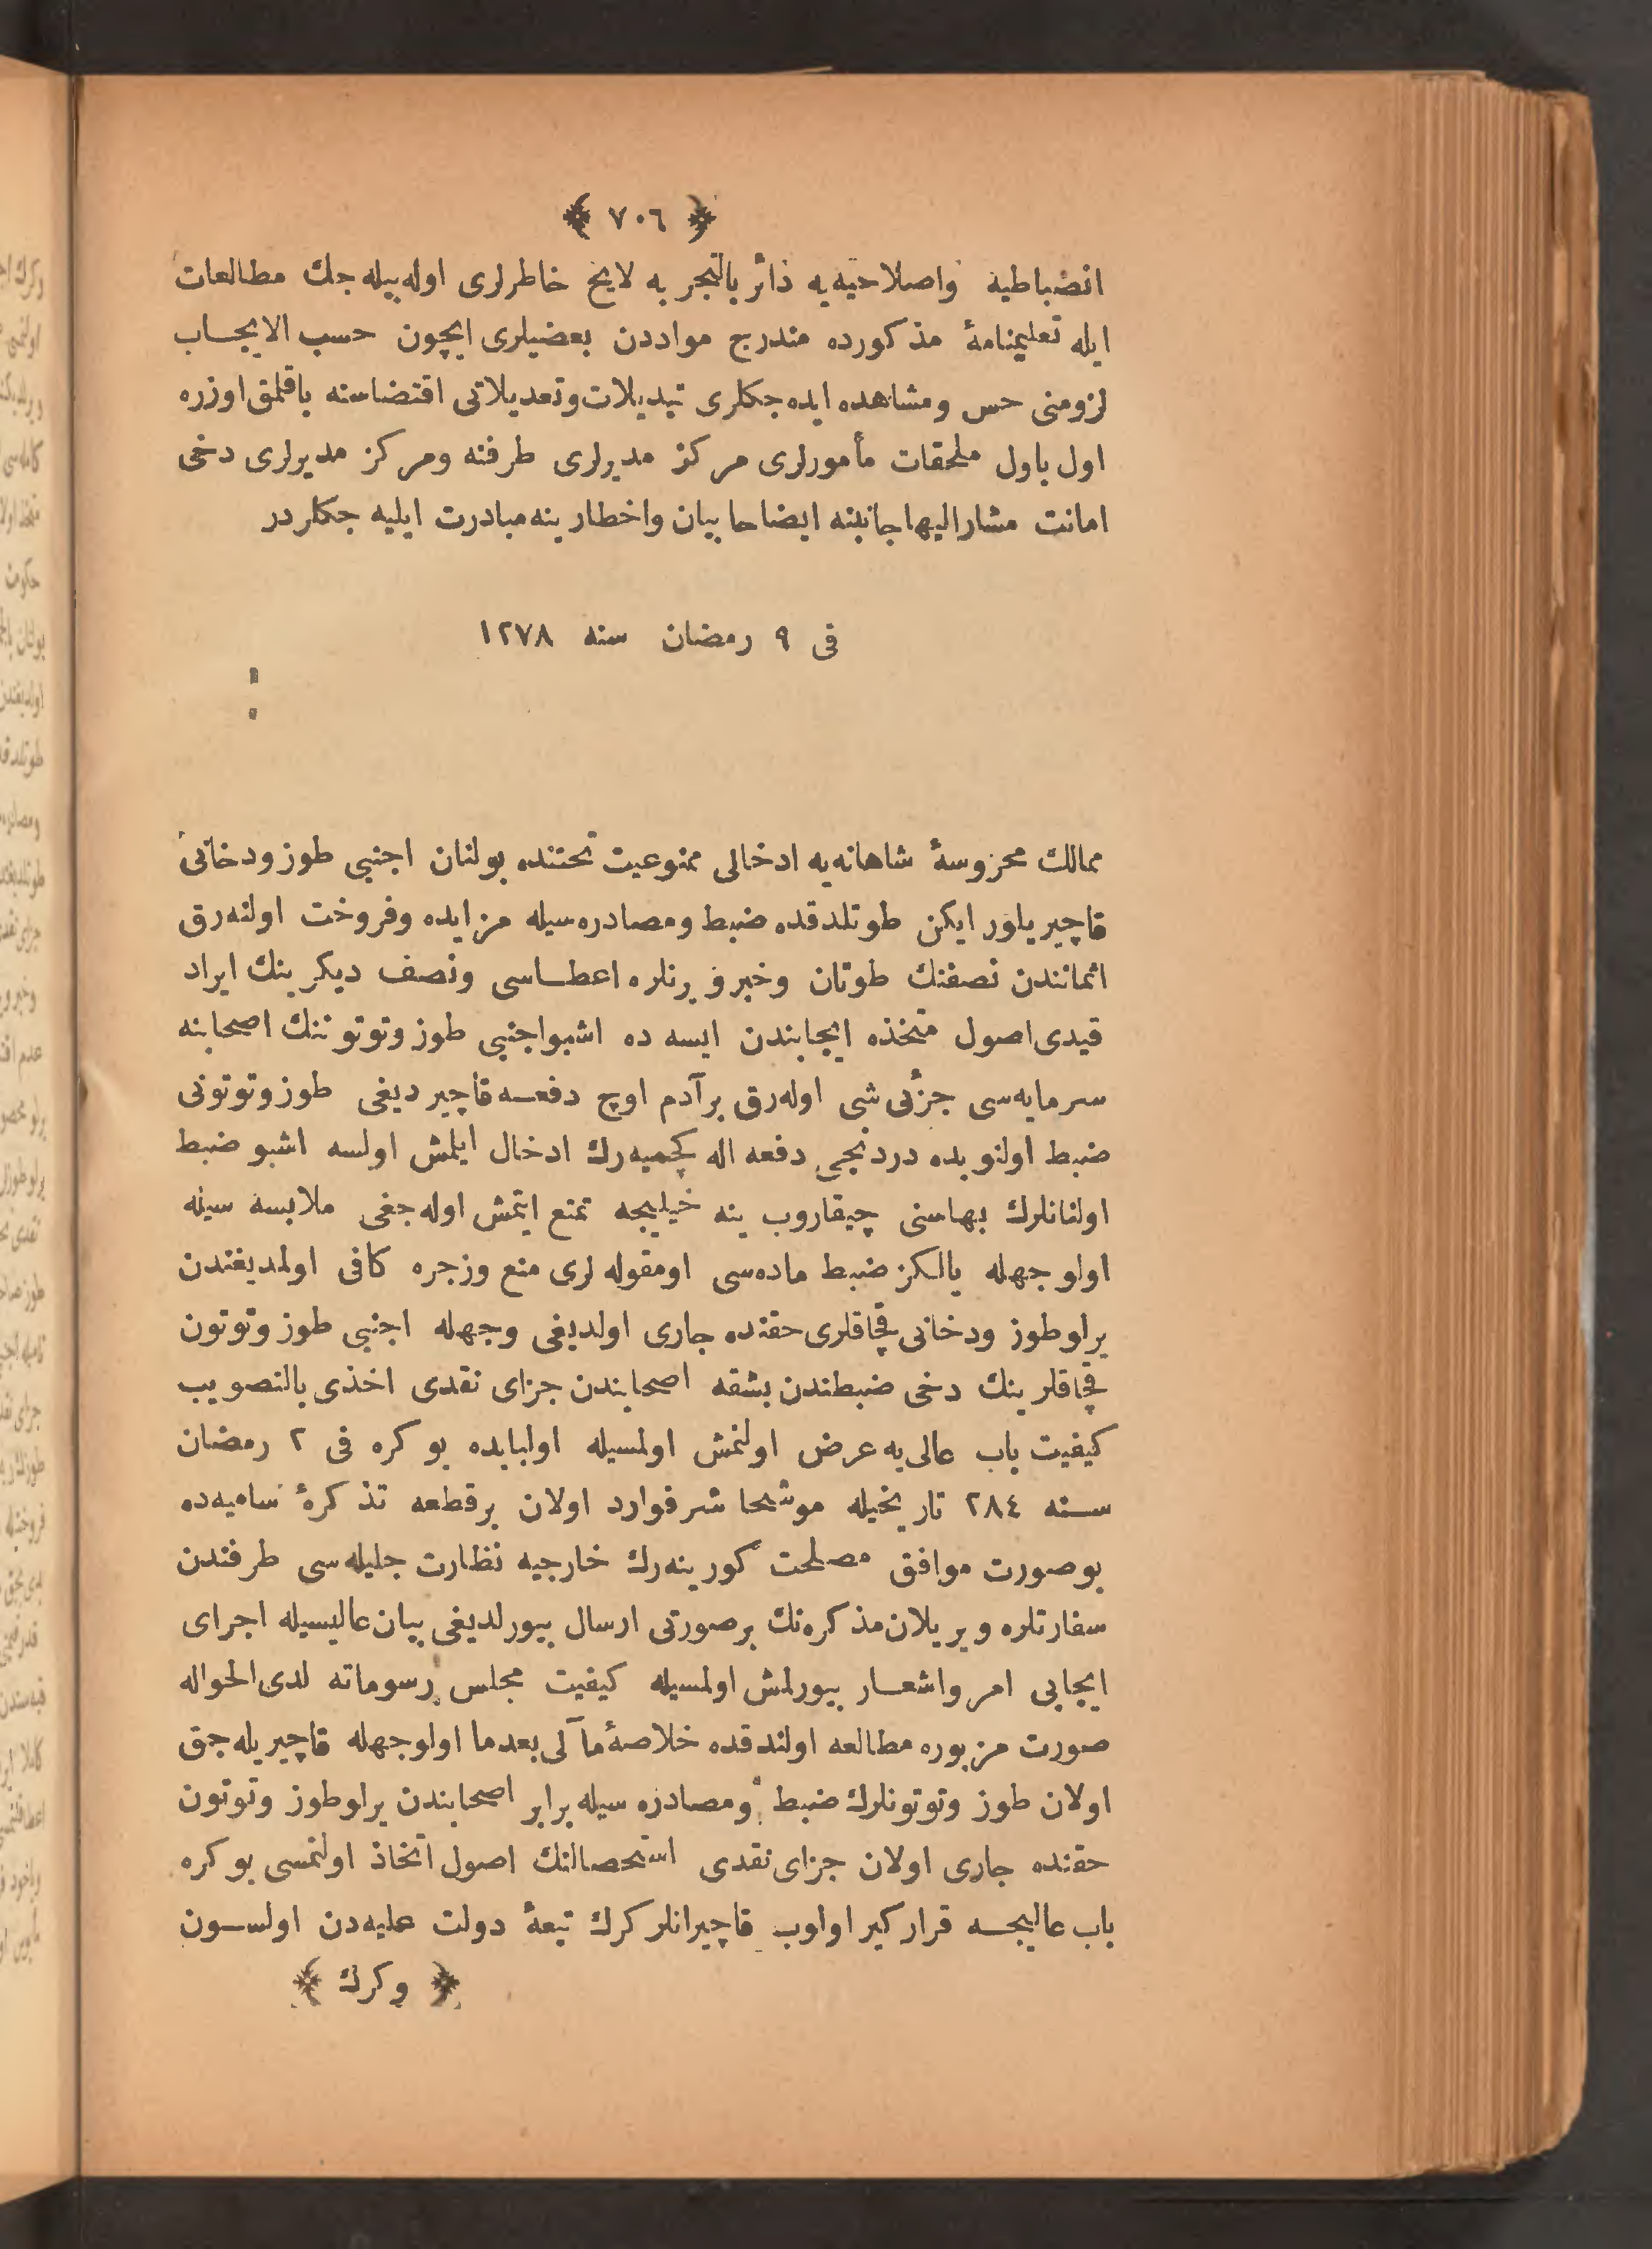 ﴿ ٧٠٦ ﴾
انضباطیه واصلاحیه‌یه دائر بالتجربه لایح خاطرلری اوله‌بیله‌جك مطالعات
ایله تعلیمنامهٔ مذكورده مندرج مواددن بعضیلری ایچون حسب الایجاب
لزومنی حس ومشاهده ایده‌جكلری تبدیلات وتعدیلاتی اقتضاسنه باقلمق اوزره
اول باول ملحقات مأمورلری مركز مدیرلری طرفنه ومركز مدیرلری دخی
امانت مشارالیها جانبنه ایضاحا بیان واخطارینه مبادرت ایلیه جكلردر
فی ٩ رمضان سنه ١٢٧٨
ممالك محروسهٔ شاهانه‌یه ادخالی ممنوعیت تحتنده بولنان اجنبی طوز ودخانی
قاچیریلور ایكن طوتلدقده ضبط ومصادره‌سیله مزایده وفروخت اولنه‌رق
اثمانندن نصفنك طوتان وخبرویرنلره اعطاسی ونصف دیكرینك ایراد
قیدی اصول متخذه ایجابندن ایسه ده اشبو اجنبی طوز وتوتوننك اصحابنه
سرمایه‌سی جزئی شی اوله‌رق برآدم اوچ دفعه قاچیردیغی طوز وتوتونی
ضبط اولنوبده دردنجی دفعه اله كچمیه‌رك ادخال ایلمش اولسه اشبو ضبط
اولنانلرك بهاسنی چیقاروب ینه خیلیجه تمتع ایتمش اوله‌جغی ملابسه سیله
اولوجهله یالكز ضبط ماده‌سی اومقوله لری منع وزجره كافی اولمدیغندن
یرلو طوز ودخانی قچاقلری حقنده جاری اولدیغی وجهله اجنبی طوز وتوتون
قچاقلرینك دخی ضبطندن بشقه اصحابندن جزای نقدی اخذی بالتصویب
كیفیت باب عالی‌یه عرض اولنمش اولمسیله اولبابده بو كره فی ٢ رمضان
سنه ٢٨٤ تاریخیله موشحا شرفوارد اولان برقطعه تذكرهٔ سامیه‌ده
بوصورت موافق مصلحت كورینه‌رك خارجیه نظارت جلیله‌سی طرفندن
سفارتلره ویریلان مذكره‌نك برصورتی ارسال بیورلدیغی بیان عالیسیله اجرای
ایجابی امر واشعار بیورلمش اولمسیله كیفیت مجلس رسوماته لدی الحواله
صورت مزبوره مطالعه اولندقده خلاصهٔ مآلی بعدما اولوجهله قاچیریله‌جق
اولان طوز وتوتونلرك ضبط ومصادره سیله برابر اصحابندن یرلو طوز وتوتون
حقنده جاری اولان جزای نقدی استحصالنك اصول اتخاذ اولنمسی بو كره
باب عالیجه قراركیر اولوب قاچیرانلر كرك تبعهٔ دولت علیه‌دن اولسون
﴿ وكرك ﴾